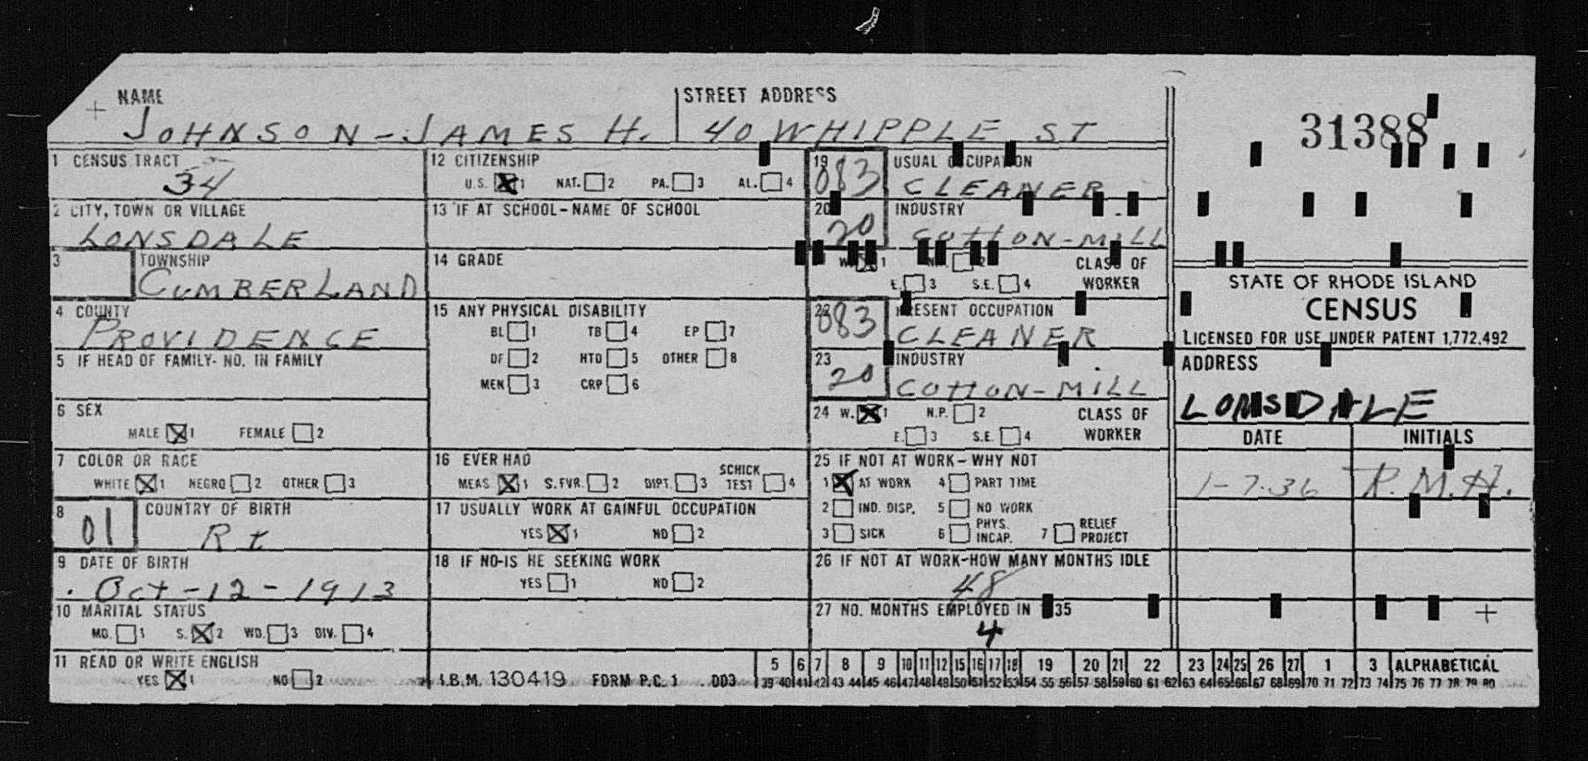 NAME STREET ADDRESS
JOHNSON-JAMES H. 40 WHIPPLE ST
31388
1 CENSUS TRACT
34
2 CITY, TOWN OR VILLAGE
LONSDALE
3 TOWNSHIP
CUMBERLAND
4 COUNTY
PROVIDENCE
5 IF HEAD OF FAMILY- NO. IN FAMILY
6 SEX
MALE 1 FEMALE 2
7 COLOR OR RACE
WHITE 1 NEGRO 2 OTHER 3
8 COUNTRY OF BIRTH
01 R I
9 DATE OF BIRTH
Oct-12-1913
10 MARITAL STATUS
MD. 1 S. 2 WD. 3 DIV. 4
11 READ OR WRITE ENGLISH
YES 1 NO 2
12 CITIZENSHIP
U.S. 1 NAT. 2 PA. 3 AL. 4
13 IF AT SCHOOL-NAME OF SCHOOL
14 GRADE
15 ANY PHYSICAL DISABILITY
BL 1 TB 4 EP 7
DF 2 HTD 5 OTHER 8
MEN 3 CRP 6
16 EVER HAD
MEAS 1 S.FVR. 2 DIPT. 3 SCHICK TEST 4
17 USUALLY WORK AT GAINFUL OCCUPATION
YES 1 NO 2
18 IF NO-IS HE SEEKING WORK
YES 1 NO 2
I.B.M. 130419 FORM P.C. 1 003
19 USUAL OCCUPATION
083 CLEANER
20 INDUSTRY
20 COTTON-MILL
W. 1 2 CLASS OF
E. 3 S.E. 4 WORKER
22 PRESENT OCCUPATION
083 CLEANER
23 INDUSTRY
20 COTTON-MILL
24 W. 1 N.P. 2 CLASS OF
E. 3 S.E. 4 WORKER
25 IF NOT AT WORK-WHY NOT
1 AT WORK 4 PART TIME
2 IND. DISP. 5 NO WORK
3 SICK 6 PHYS. INCAP. 7 RELIEF PROJECT
26 IF NOT AT WORK-HOW MANY MONTHS IDLE
48
27 NO. MONTHS EMPLOYED IN 35
4
STATE OF RHODE ISLAND
CENSUS
LICENSED FOR USE UNDER PATENT 1,772,492
ADDRESS
LONSDALE
DATE INITIALS
1-7-36 R.M.H.
5 6 7 8 9 10 11 12 15 16 17 18 19 20 21 22 23 24 25 26 27 1 3 ALPHABETICAL
39 40 41 42 43 44 45 46 47 48 49 50 51 52 53 54 55 56 57 58 59 60 61 62 63 64 65 66 67 68 69 70 71 72 73 74 75 76 77 78 79 80